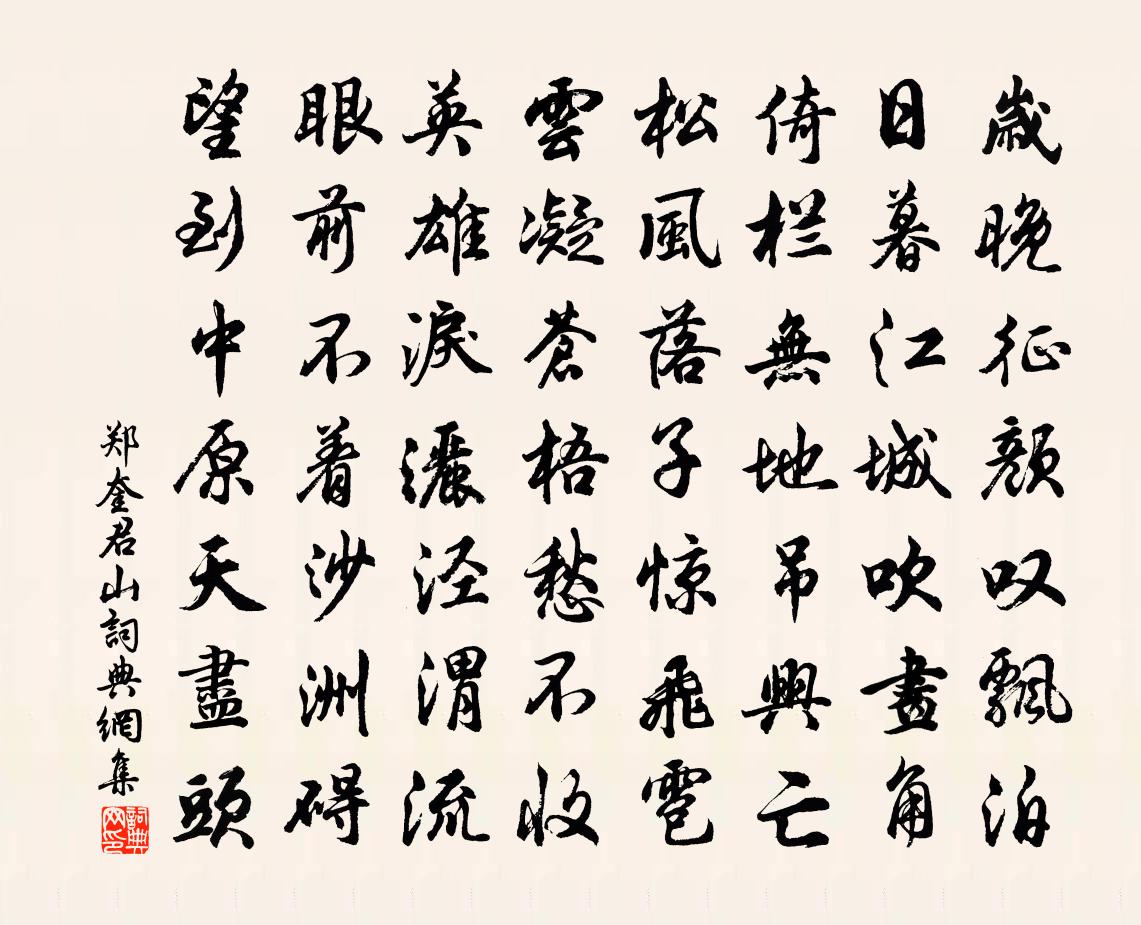 歲晚征顏叹飄泊
日暮江城吹畫角
倚栏無地吊興亡
松風落子惊飛雹
雲凝蒼梧愁不收
英雄淚灑泾渭流
眼前不着沙洲碍
望到中原天盡頭
郑奎君山詞典網集
詞典网印